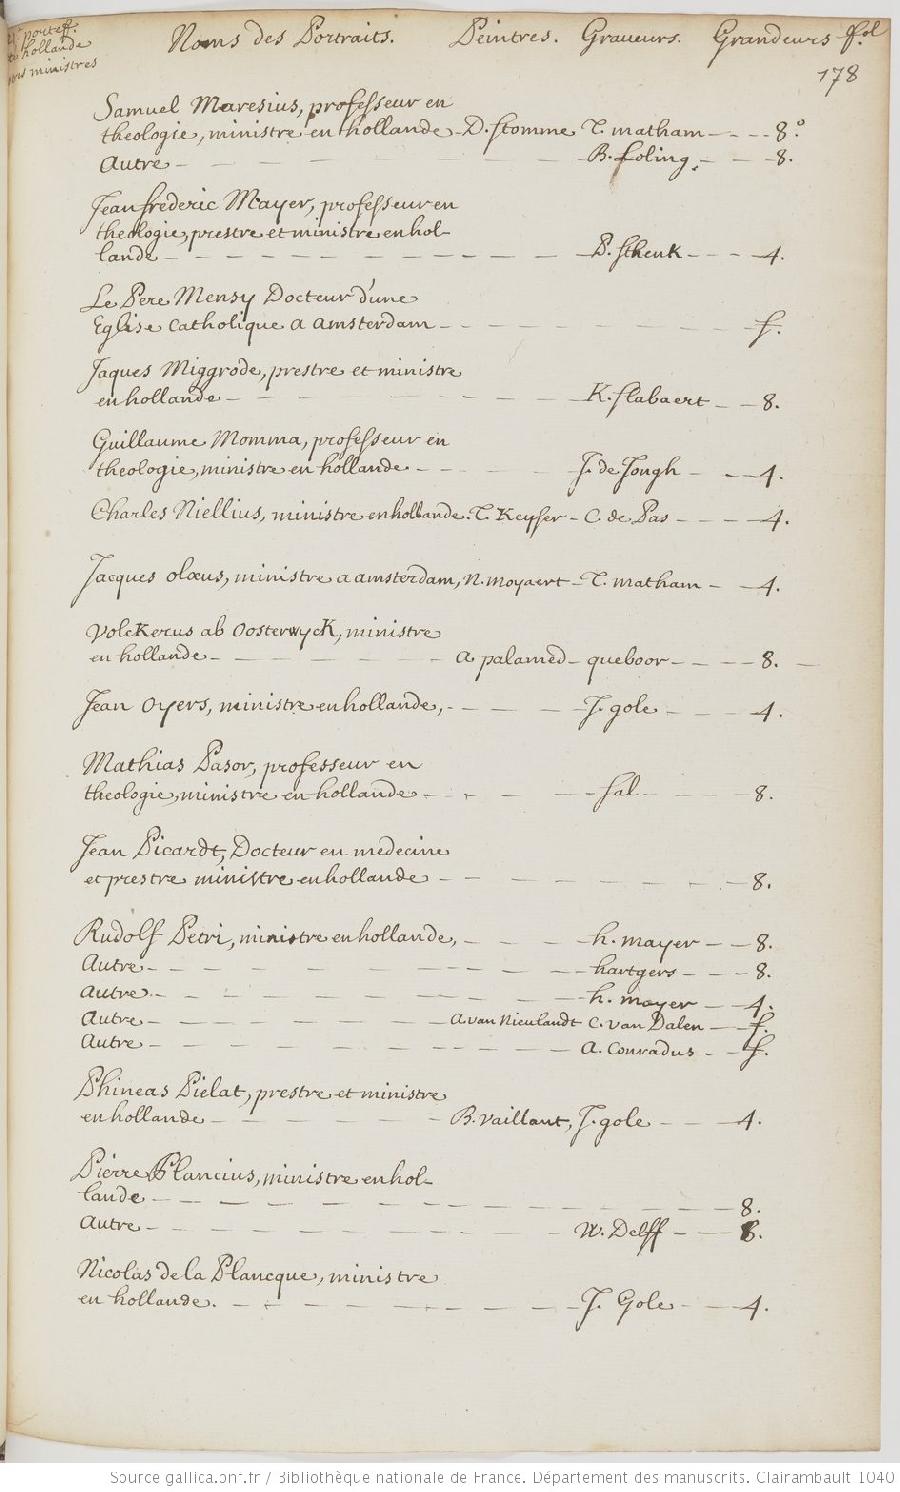 portef.
hollande
ministres
Noms des Portraits. Peintres. Graveurs. Grandeurs fol.
178
Samuel Maresius, professeur en
theologie, ministre en hollande - D. stomme T. matham - - - 8.°
Autre - - - - - B. foling, - - - 8.
Jean frederic Mayer, professeur en
theologie, prestre et ministre en hol-
lande - - - - - P. schenk - - - 4.
Le Pere Mensy Docteur d'une
Eglise Catholique a amsterdam - - - - - f.
Jaques Miggrode, prestre et ministre
en hollande - - - - - K. slabaert - - 8.
Guillaume Momma, professeur en
theologie, ministre en hollande - - - - J. de Jongh - - - 4.
Charles Niellius, ministre en hollande. T. Keyser - C de Pas - - - - 4.
Jacques olœus, ministre a amsterdam, N. moyaert - T. matham - - 4.
Volckerus ab Oosterwyck, ministre
en hollande - - - - - a palamed - queboor - - - - 8. -
Jean Oyers, ministre en hollande, - - - - J. gole - - - 4.
Mathias Pasor, professeur en
theologie, ministre en hollande - - - - - fal - - - 8.
Jean Picardt, Docteur en medecine
et prestre ministre en hollande - - - - - 8.
Rudolf Petri, ministre en hollande, - - - - h. mayer - - 8.
Autre - - - - - hartgers - - - 8.
Autre - - - - - h. mayer - - 4.
Autre - - - - - a van Nieulandt C. van Dalen - - f.
Autre - - - - - a. Conradus - - f.
Phineas Pielat, prestre et ministre
en hollande - - - - - B. Vaillant, J. gole - - - 4.
Pierre Plancius, ministre en hol-
lande - - - - - 8.
Autre - - - - - W. Delff - - 8.
Nicolas de la Plancque, ministre
en hollande. - - - - - J. Gole - - 4.
Source gallica.bnf.fr / Bibliothèque nationale de France. Département des manuscrits. Clairambault 1040